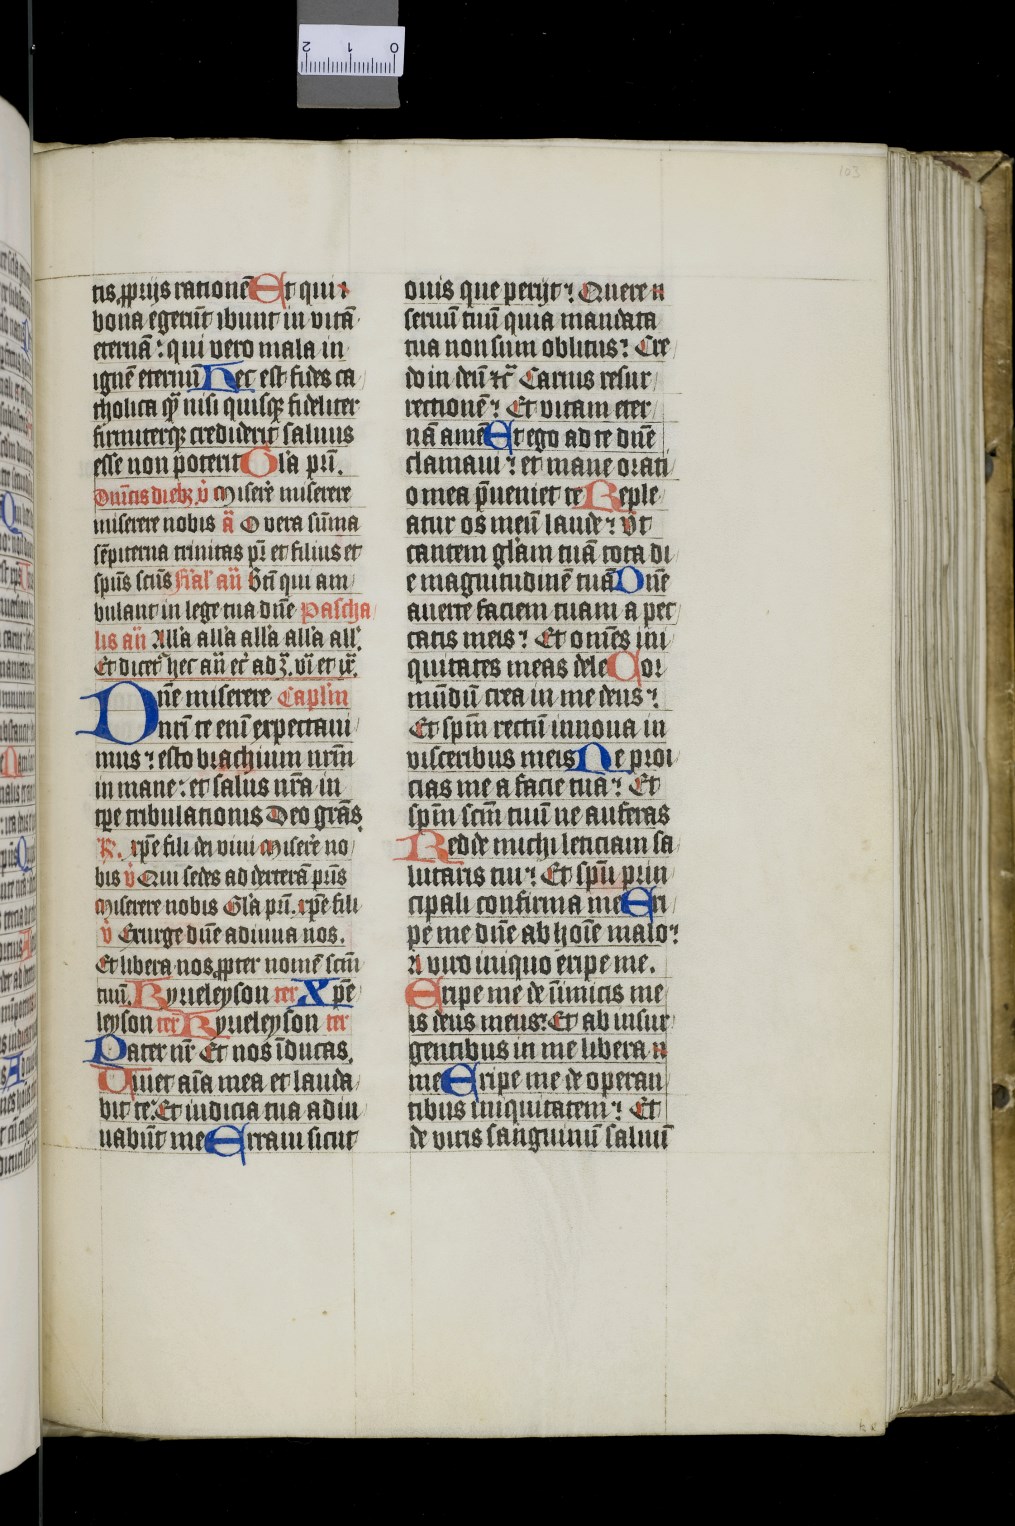 103
tis ꝓprijs rationē Et qui
bona egerūt ibunt in vitā
eternā : qui vero mala in
ignē eternū Hec est fides ca
tholica qͣ̄ nisi quisqꝫ fideliter
firmiterqꝫ crediderit saluus
esse non poterit Gl'a pr̄i.
Dn̄icis diebꝫ. v̄ Miserē miserere
miserere nobis ā O vera sūma
sēpiterna trinitas pr̄ et filius et
spūs scūs Fīal' añ Bt̄i qui am
bulant in lege tua dn̄e Pascha
lis añ All'a all'a all'a all'a all'.
Et dicet' hec añ et' ad ʒ. vi et ix.
Dn̄e miserere Capl'm
nr̄i te enī expectaui
mus : esto brachium nr̄m
in mane : et salus nr̄a in
tp̄e tribulationis Deo grās.
R. xp̄e fili dei viui Miserē no
bis v̄ Qui sedes ad dexterā pr̄is
Miserere nobis Gl'a pr̄i. xp̄e fili
v̄ Exurge dn̄e adiuua nos.
Et libera nos ꝓpter nomē scm̄
tuū. Kyrieleyson ter Xp̄e
leyson ter Kyrieleyson ter
Pater nr̄ Et nos īducas.
Viuet aīa mea et lauda
bit te : Et iudicia tua adiu
uabūt me Erraui sicut
ouis que perijt : Quere
seruū tuū quia mandata
tua non sum oblitus : Cre
do in deū ⁊c̄ Carnis resur
rectionē : Et vitam eter
nā amē Et ego ad te dn̄e
clamaui : et mane orati
o mea p̄ueniet te Reple
atur os meū laude : Vt
cantem gl'am tuā tota di
e magnitudinē tuā Dn̄e
auerte faciem tuam a pec
catis meis : Et omēs ini
quitates meas dele Cor
mūdū crea in me deus :
Et spm̄ rectū innoua in
visceribus meis Ne proi
cias me a facie tua : Et
spm̄ scm̄ tuū ne auferas
Redde michi leticiam sa
lutaris tui : Et spū prin
cipali confirma me Eri
pe me dn̄e ab hoīe malo :
A viro iniquo eripe me.
Eripe me de inīmicis me
is deus meus : Et ab insur
gentibus in me libera
me Eripe me de operan
tibus iniquitatem : Et
de viris sanguinū saluū